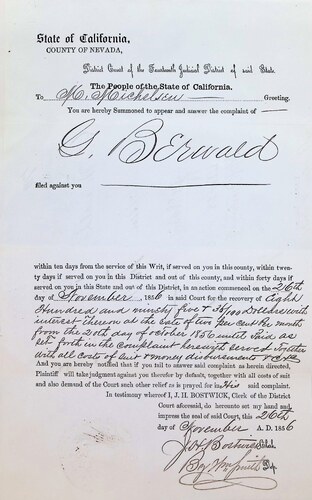 State of California,
COUNTY OF NEVADA,
District Court of the Fourteenth Judicial District of said State.
The People of the State of California.
To M. Michelsen Greeting.
You are hereby Summoned to appear and answer the complaint of
G. Berwald
filed against you
within ten days from the service of this Writ, if served on you in this county, within twen-
ty days if served on you in this District and out of this county, and within forty days if
served on you in this State and out of this District, in an action commenced on the 26th
day of November, 1856 in said Court for the recovery of Eight
Hundred and ninety five & 36/100 Dollars with
interest thereon at the rate of two per cent per month
from the 20th day of october 1856 until paid as
set forth in the complaint herewith served together
with all costs of suit & money disbursement
And you are hereby notified that if you fail to answer said complaint as herein directed,
Plaintiff will take judgment against you therefor by default, together with all costs of suit
and also demand of the Court such other relief as is prayed for in his said complaint.
In testimony whereof I, J. H. BOSTWICK, Clerk of the District
Court aforesaid, do hereunto set my hand and
impress the seal of said Court, this 26th
day of November A. D. 1856
J H Bostwick Clerk.
By Wm Smith Dep